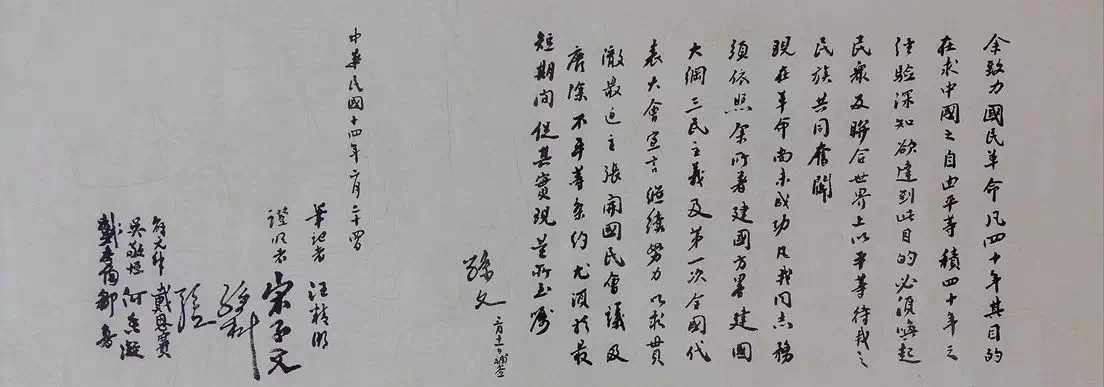 余致力國民革命凡四十年其目的
在求中國之自由平等積四十年之
經驗深知欲達到此目的必須喚起
民眾及聯合世界上以平等待我之
民族共同奮鬭
現在革命尚未成功凡我同志務
須依照余所著建國方畧建國
大綱三民主義及第一次全國代
表大會宣言繼續努力以求貫
澈最近主張開國民會議及
廢除不平等條約尤須於最
短期間促其實現是所至囑
孫文 三月十一日補簽
中華民國十四年二月二十四日
筆記者 汪精衛
證明者 宋子文
孫科
孔祥熙
邵元冲 戴恩賽
吳敬恆 何香凝
戴季陶 鄒魯